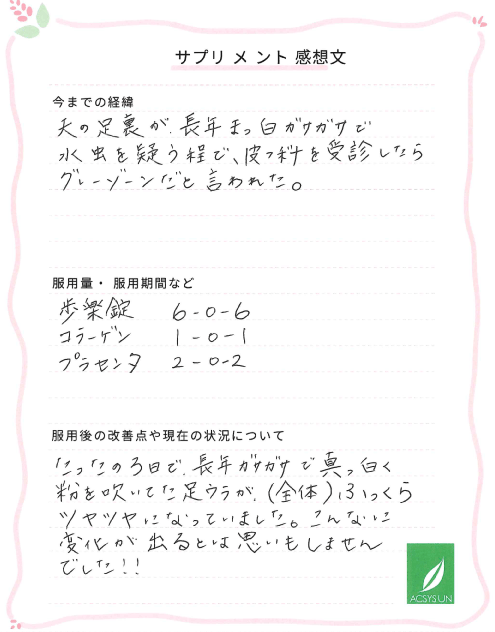 サプリメント 感想文
今までの経緯
夫の足裏が、長年まっ白ガサガサで
水虫を疑う程で、皮フ科を受診したら
グレーゾーンだと言われた。
服用量・ 服用期間など
歩楽錠 6-0-6
コラーゲン 1-0-1
プラセンタ 2-0-2
服用後の改善点や現在の状況について
たったの3日で、長年ガサガサで真っ白く
粉を吹いてた足ウラが、(全体)ふっくら
ツヤツヤになっていました。こんなに
変化が出るとは思いもしません
でした!!
ACSYSUN